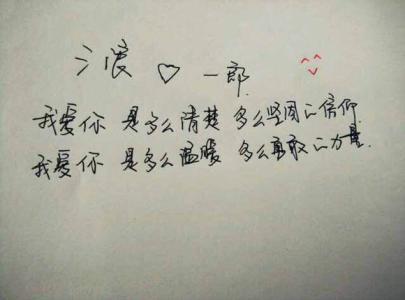 渡 ♡ 一郎
我爱你 是多么清楚 多么坚固的信仰
我爱你 是多么温暖 多么勇敢的力量.